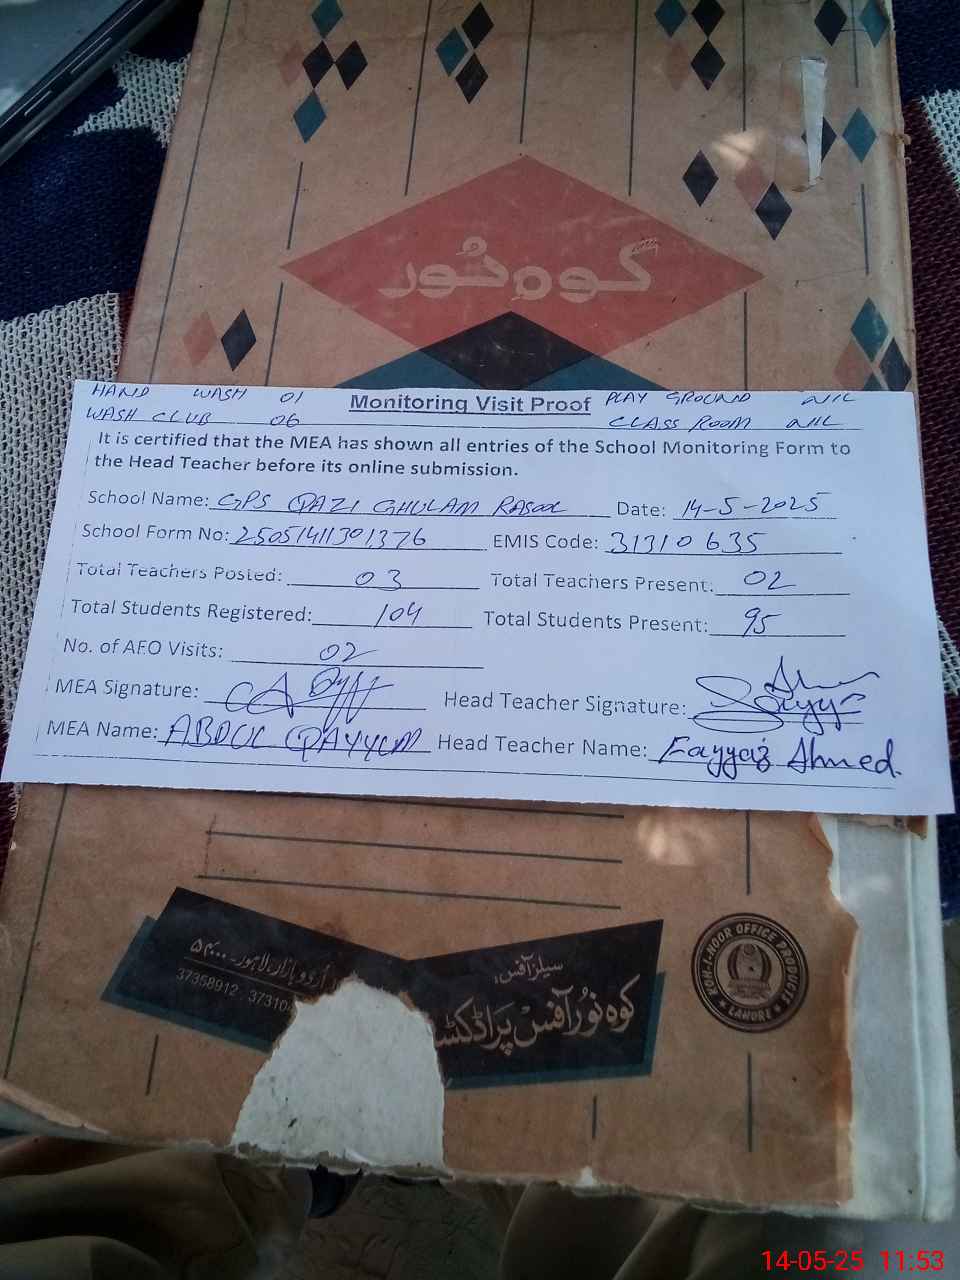 کوہ نُور
HAND WASH 01 Monitoring Visit Proof PLAY GROUND NIL
WASH CLUB 06 CLASS ROOM NIL
It is certified that the MEA has shown all entries of the School Monitoring Form to
the Head Teacher before its online submission.
School Name: GPS QAZI GHULAM RASOOL Date: 14-5-2025
School Form No: 25051411301376 EMIS Code: 31310635
Total Teachers Posted: 03 Total Teachers Present: 02
Total Students Registered: 104 Total Students Present: 95
No. of AEO Visits: 02
MEA Signature: Head Teacher Signature:
MEA Name: ABDUL QAYYUM Head Teacher Name: Fayyaz Ahmed.
سیلز آفس:
کوہ نُور آفس پراڈکٹس
اُردو بازار، لاہور۔ ۵۴۰۰۰
37358912, 37310
KOH-I-NOOR OFFICE PRODUCTS
LAHORE
14-05-25 11:53